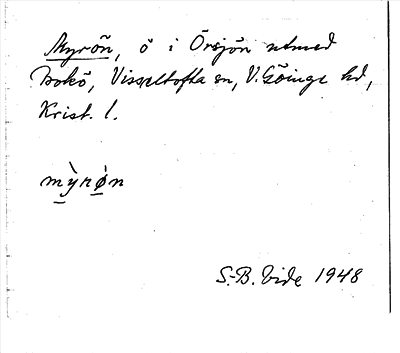 Myrön, ö i Örsjön utmed
Bokö, Visseltofta sn, V. Göinge hd,
Krist. l.
mỳrø̀n
S.-B. Vide 1948